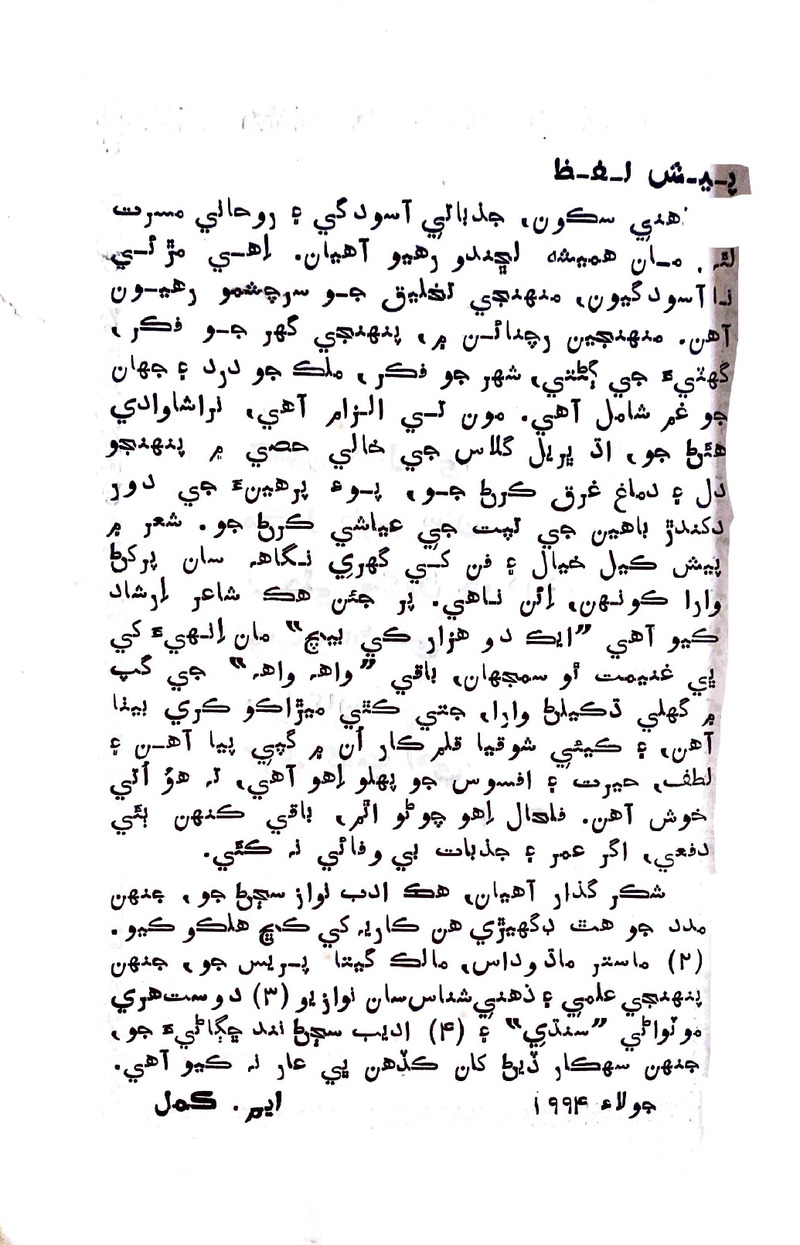 پيش لفظ
ذهني سڪون، جذباتي آسودگي ۽ روحاني مسرت
لئہ مان هميشہ لڇندو رهيو آهيان. اهي مڙئي
نا آسودگيون، منهنجي تخليق جو سرچشمو رهيون
آهن. منهنجين رچنائن ۾، پنهنجي گهر جو فڪر،
گهٽيءَ جي ڳڻتي، شهر جو فڪر، ملڪ جو درد ۽ جهان
جو غم شامل آهي. مون تي الزام آهي، نراشاوادي
هئڻ جو، اڌ ڀريل گلاس جي خالي حصي ۾ پنهنجو
دل ۽ دماغ غرق ڪرڻ جو، پوءِ پرهينءَ جي دور
دکندڙ باهين جي تپت جي عياشي ڪرڻ جو. شعر ۾
پيش ڪيل خيال ۽ فن کي گهري نگاهہ سان پرکڻ
وارا ڪونهن، ائن ناهي. پر جئن هڪ شاعر ارشاد
ڪيو آهي ”ايڪ دو هزار ڪي بيچ“ مان انهيءَ کي
ڀي غنيمت ٿو سمجهان، باقي ”واهہ واهہ“ جي گپ
۾ گهلي ڌڪيلڻ وارا، جتي ڪٿي ميڙاڪو ڪري بيٺا
آهن، ۽ ڪيئي شوقيا قلمڪار اُن ۾ گپي پيا آهن ۽
لطف، حيرت ۽ افسوس جو پهلو اهو آهي، تہ هوُ اُتي
خوش آهن. فلحال اهو چوڻو اٿم، باقي ڪنهن ٻئي
دفعي، اگر عمر ۽ جذبات بي وفائي نہ ڪئي.
شڪر گذار آهيان، هڪ ادب نواز سڄڻ جو، جنهن
مدد جو هٿ ڊگهيڙي هن ڪاريہ کي ڪڇ هلڪو ڪيو.
(۲) ماستر ماڌوداس، مالڪ گيتا پريس جو، جنهن
پنهنجي علمي ۽ ذهني شناس سان نوازيو (۳) دوست هري
موٽواڻي ”سنڌي“ ۽ (۴) اديب سڄڻ نند ڇڳاڻيءَ جو،
جنهن سهڪار ڏيڻ کان ڪڏهن ڀي عار نہ ڪيو آهي.
جولاءِ ۱۹۹۴ ايم. ڪمل